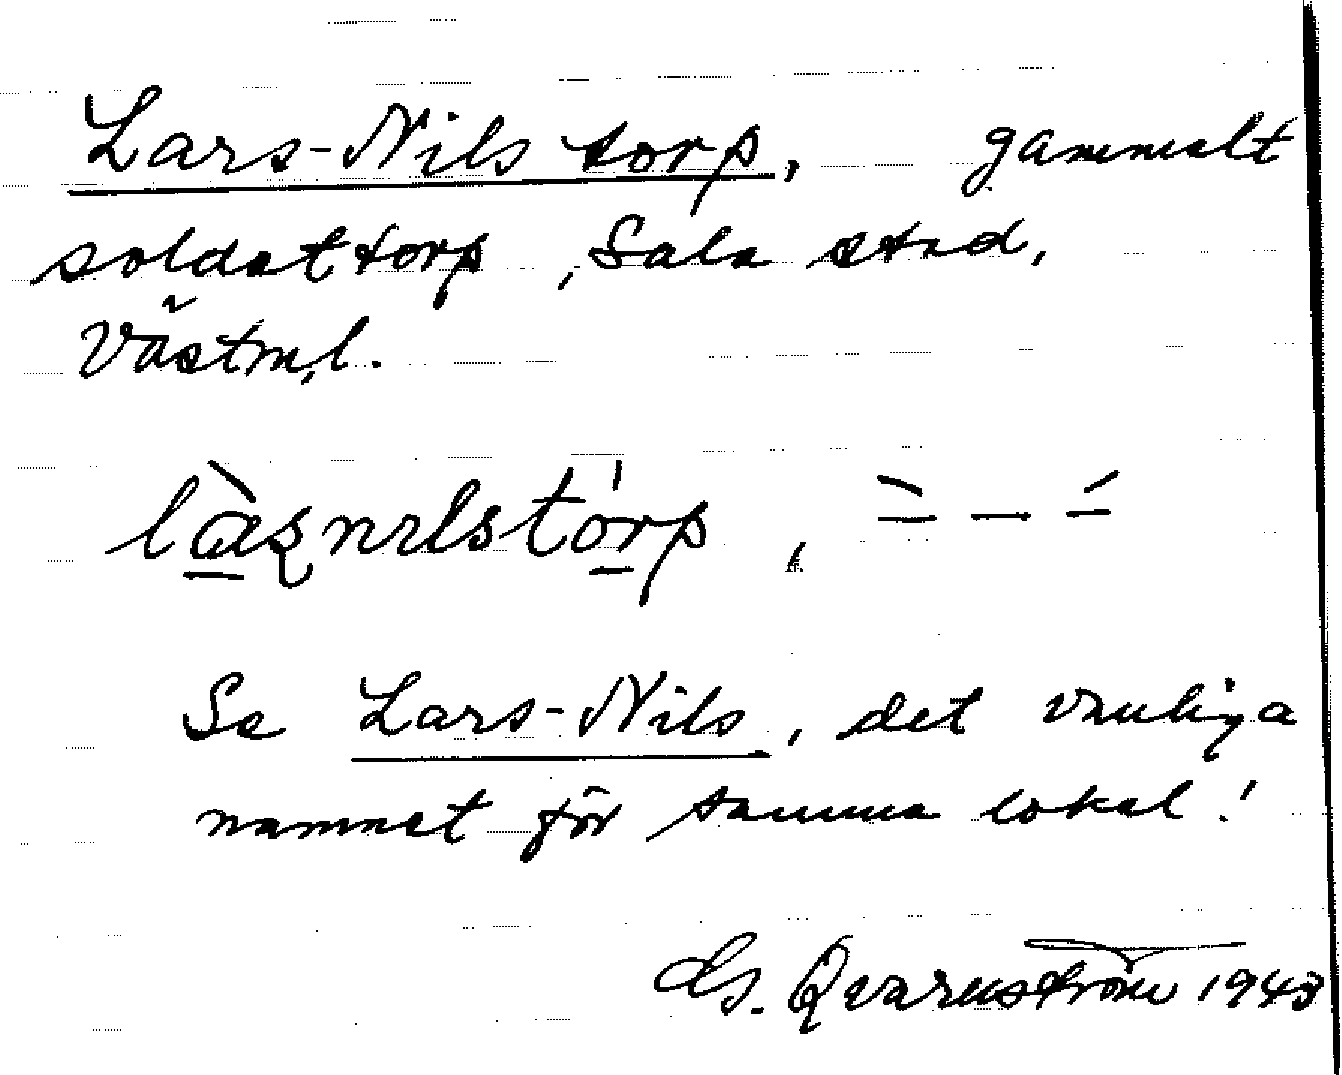 Lars-Nilstorp, gammalt
soldattorp, Sala stad,
Västml.
là̱ʂnɪlstó̱rp, ⏤̀ — ⏤́
Se Lars-Nils, det vanliga
namnet för samma lokal!
Gs. Qvarnström 1943